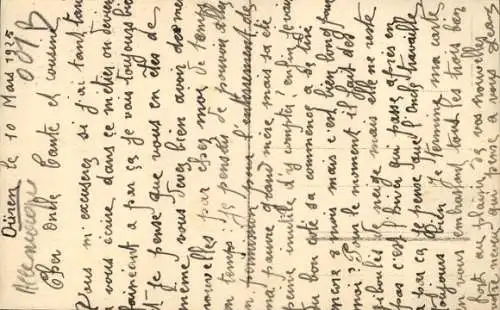 Düren le 10 Mars 1925
Allemagne
Cher Oncle Tante et cousine
Vous m'excuserez si j'ai tant tardé
à vous écrire dans ce métier on devient
fainéant à par ça je vais toujours bien
et je pense que vous en êtes de
même vous devez bien avoir des
nouvelles par chez moi de temps
en temps; je pensais de pouvoir aller
en permission pour l'enterrement de
ma pauvre grand mère mais sa été
peine inutile d'y compter, enfin je vais
du bon côté sa commence à se tirer
mène 2 mois mais c'est bien long
moi? Pour le moment il fait des
giboulées de neige mais elle ne reste
pas c'est l'hiver qui passe après
à par ça je pense que l'Oncle travaille
toujours bien Je termine ma carte
en vous embrassant tous les trois bien
fort au plaisir de vos nouvelles